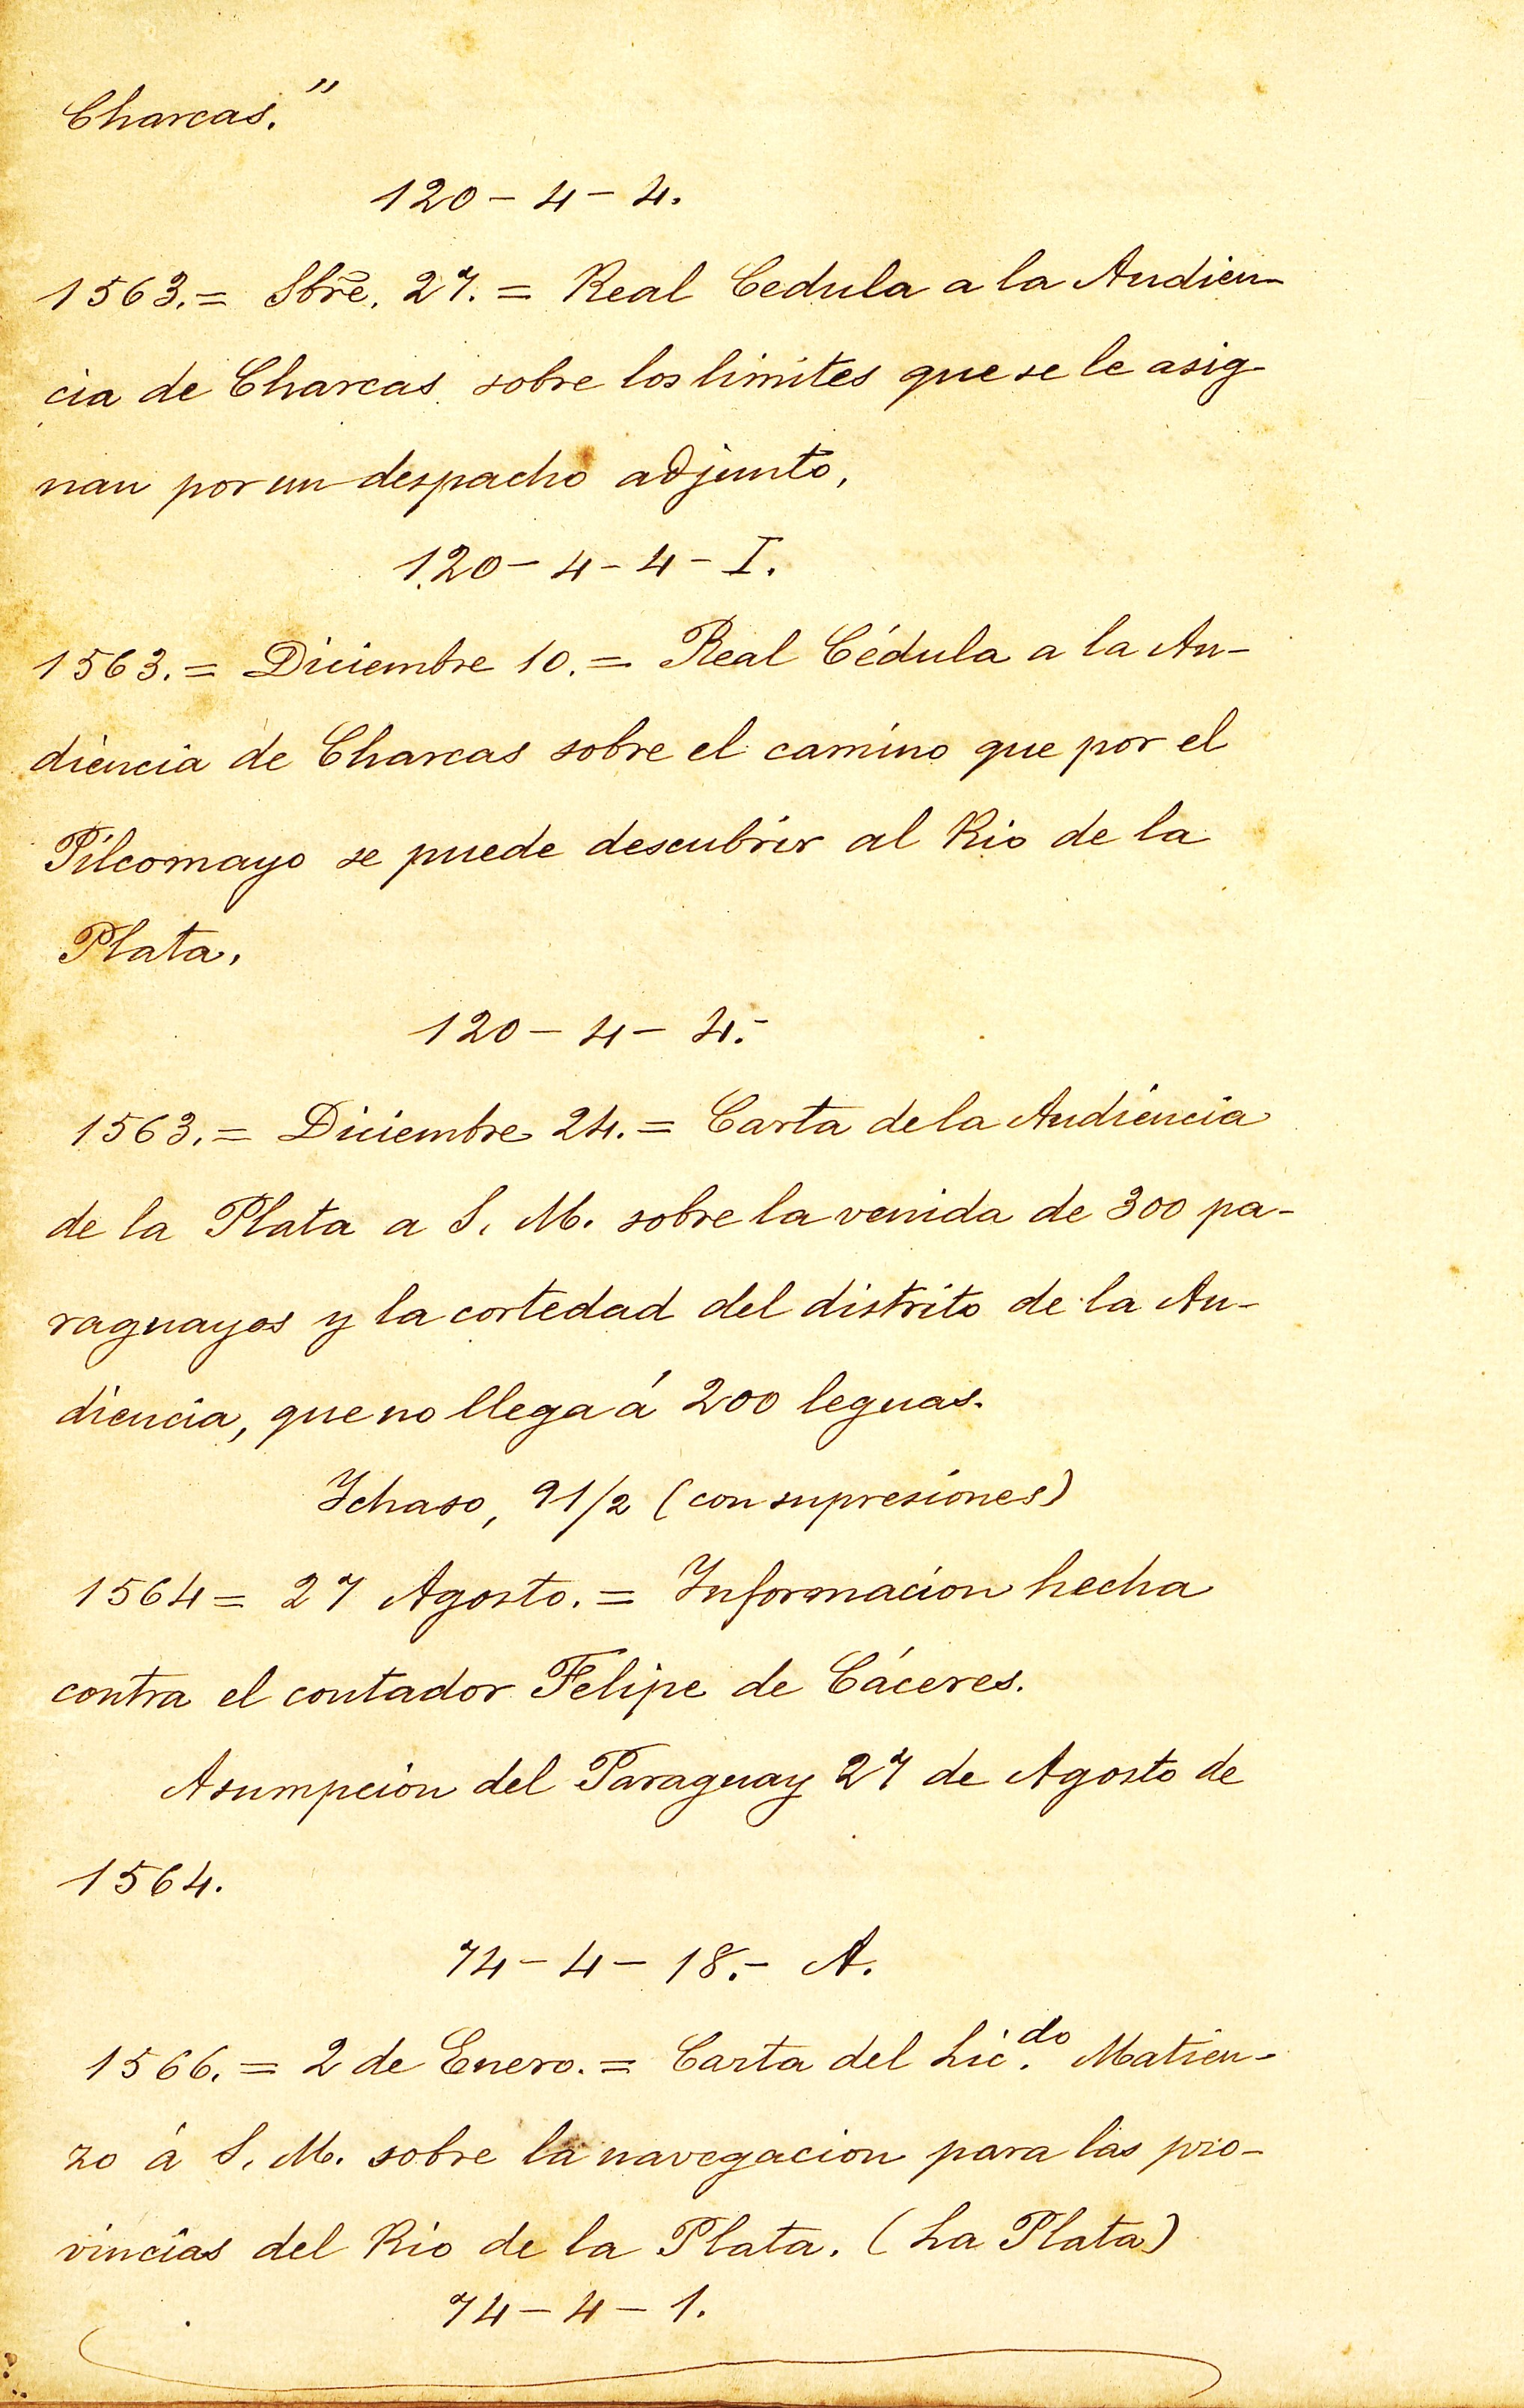 Charcas."
120 - 4 - 4.
1563. = Sbrē. 27. = Real Cedula a la Audien-
cia de Charcas sobre los limites que se le asig-
nan por un despacho adjunto,
120 - 4 - 4 - I.
1563. = Diciembre 10. = Real Cédula a la Au-
diencia de Charcas sobre el camino que por el
Pilcomayo se puede descubrir al Rio de la
Plata.
120 - 4 - 4.-
1563. = Diciembre 24. = Carta de la Audiencia
de la Plata a S. M. sobre la venida de 300 pa-
raguayos y la cortedad del distrito de la Au-
diencia, que no llega á 200 leguas.
Ichaso, 91/2 (con supresiones)
1564 = 27 Agosto. = Informacion hecha
contra el contador Felipe de Cáceres.
Asumpcion del Paraguay 27 de Agosto de
1564.
74 - 4 - 18.- A.
1566. = 2 de Enero. = Carta del Lic.do Matien-
zo á S. M. sobre la navegacion para las pro-
vincias del Rio de la Plata. (La Plata)
74 - 4 - 1.